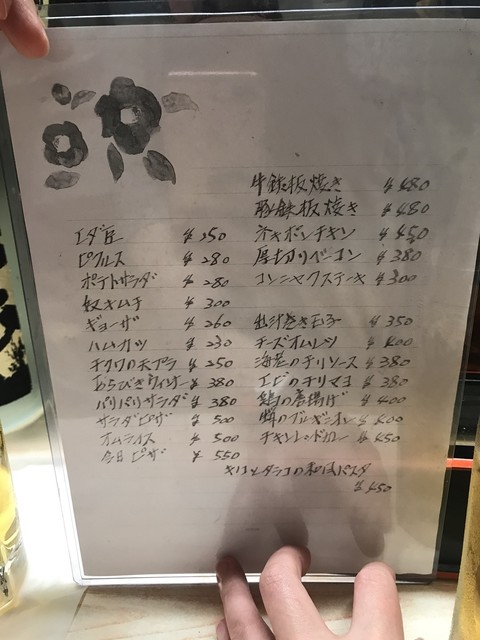 エダ豆 ¥250
ピクルス ¥280
ポテトサラダ ¥280
奴キムチ ¥300
ギョーザ ¥260
ハムカツ ¥230
チクワの天プラ ¥250
あらびきウィンナー ¥380
パリパリサラダ ¥380
サラダピザ ¥500
オムライス ¥500
今日ピザ ¥550
牛鉄板焼き ¥480
豚鉄板焼き ¥480
ネギポンチキン ¥450
厚切りベーコン ¥380
コンニャクステーキ ¥300
出汁巻き玉子 ¥350
チーズオムレツ ¥400
海老のチリソース ¥380
エビのチリマヨ ¥380
鶏の唐揚げ ¥400
のブルギニオン ¥400
チキン ¥450
タラコの和風パスタ
¥450